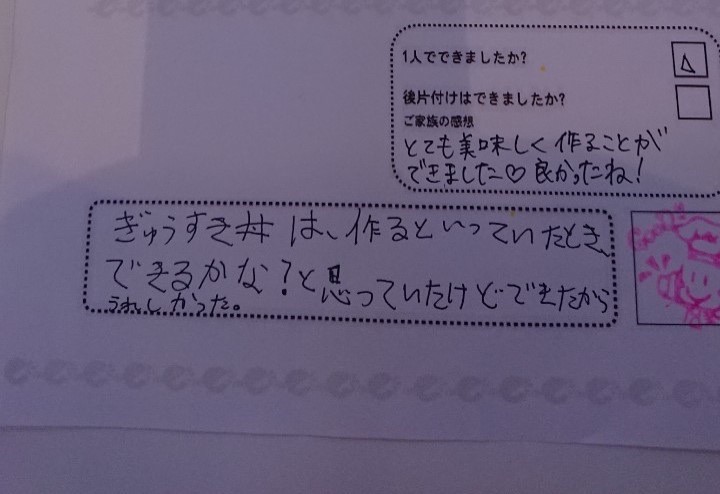 1人でできましたか?
後片付けはできましたか?
ご家族の感想
とても美味しく作ることが
できました♡良かったね!
ぎゅうすき丼は、作るといっていたとき、
できるかな?と思っていたけどできたから
うれしかった。